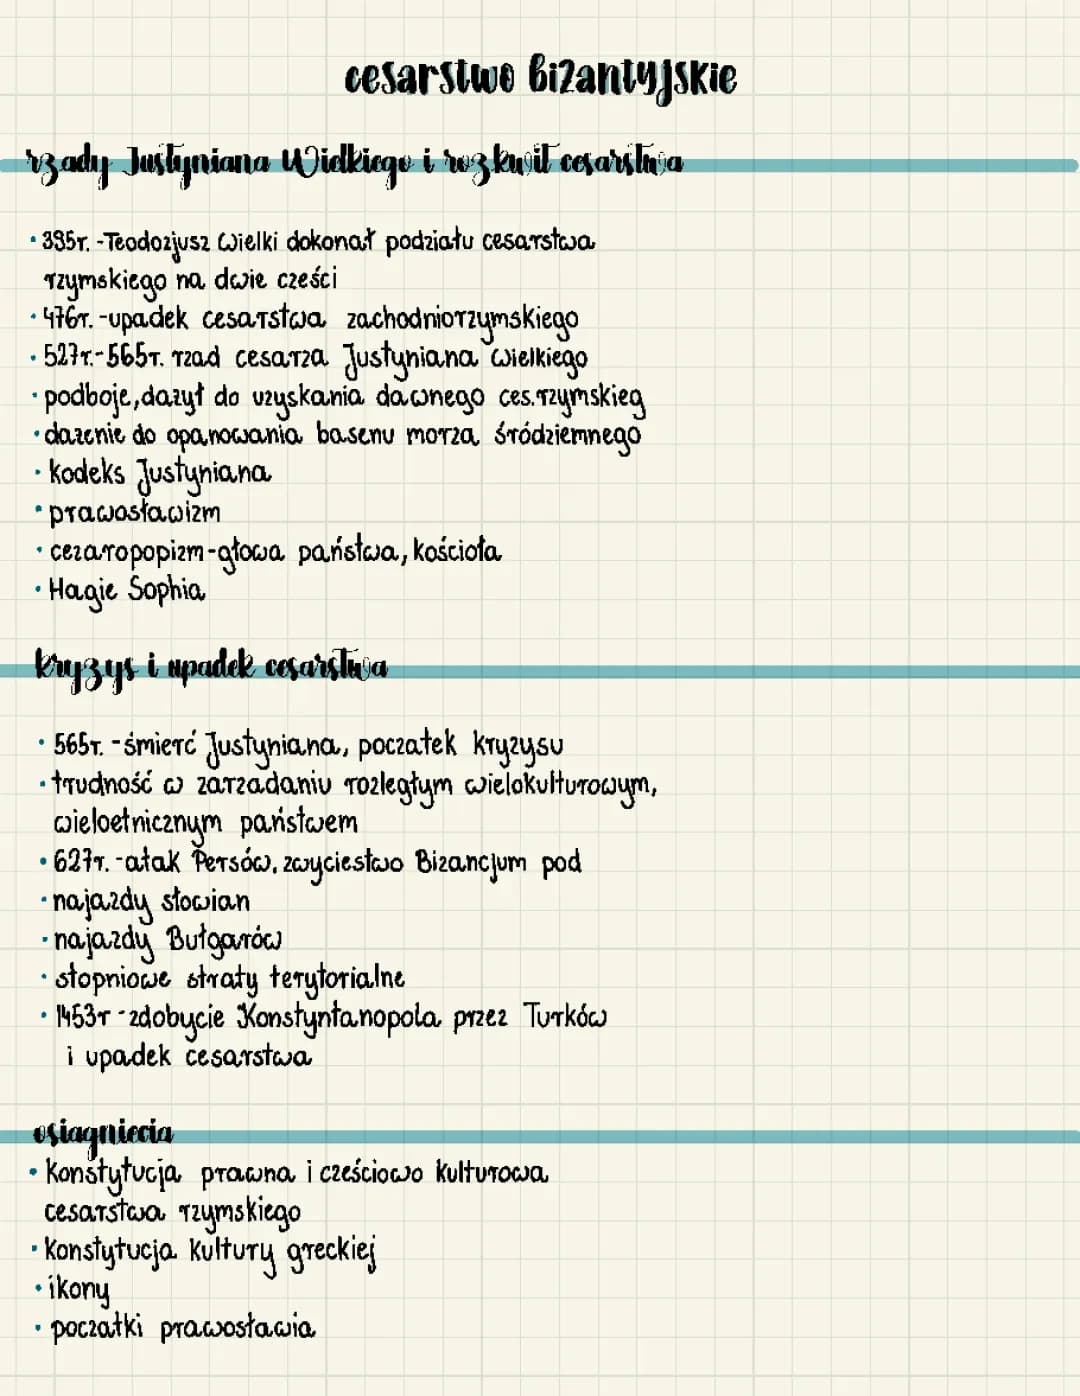 cesarstwo bizantyjskie
rzady Justyniana Wielkiego i rozkwit cesarstwa
• 395r. -Teodozjusz Wielki dokonał podziału cesarstwa
rzymskiego na dwie cześci
• 476r. -upadek cesarstwa zachodniorzymskiego
• 527r.-565r. rzad cesarza Justyniana Wielkiego
• podboje, dazył do uzyskania dawnego ces.rzymskieg
• dazenie do opanowania basenu morza śródziemnego
• kodeks Justyniana
• prawosławizm
• cezaropopizm-głowa państwa, kościoła
• Hagie Sophia
kryzys i upadek cesarstwa
• 565r. -śmierć Justyniana, poczatek kryzysu
• trudność w zarzadaniu rozległym wielokulturowym,
wieloetnicznym państwem
• 627r. -atak Persów, zwyciestwo Bizancjum pod
• najazdy słowian
• najazdy Bułgarów
• stopniowe straty terytorialne
• 1453r -zdobycie Konstyntanopola przez Turków
i upadek cesarstwa
osiagniecia
• Konstytucja prawna i cześciowo kulturowa
cesarstwa rzymskiego
• Konstytucja kultury greckiej
• ikony
• poczatki prawosławia